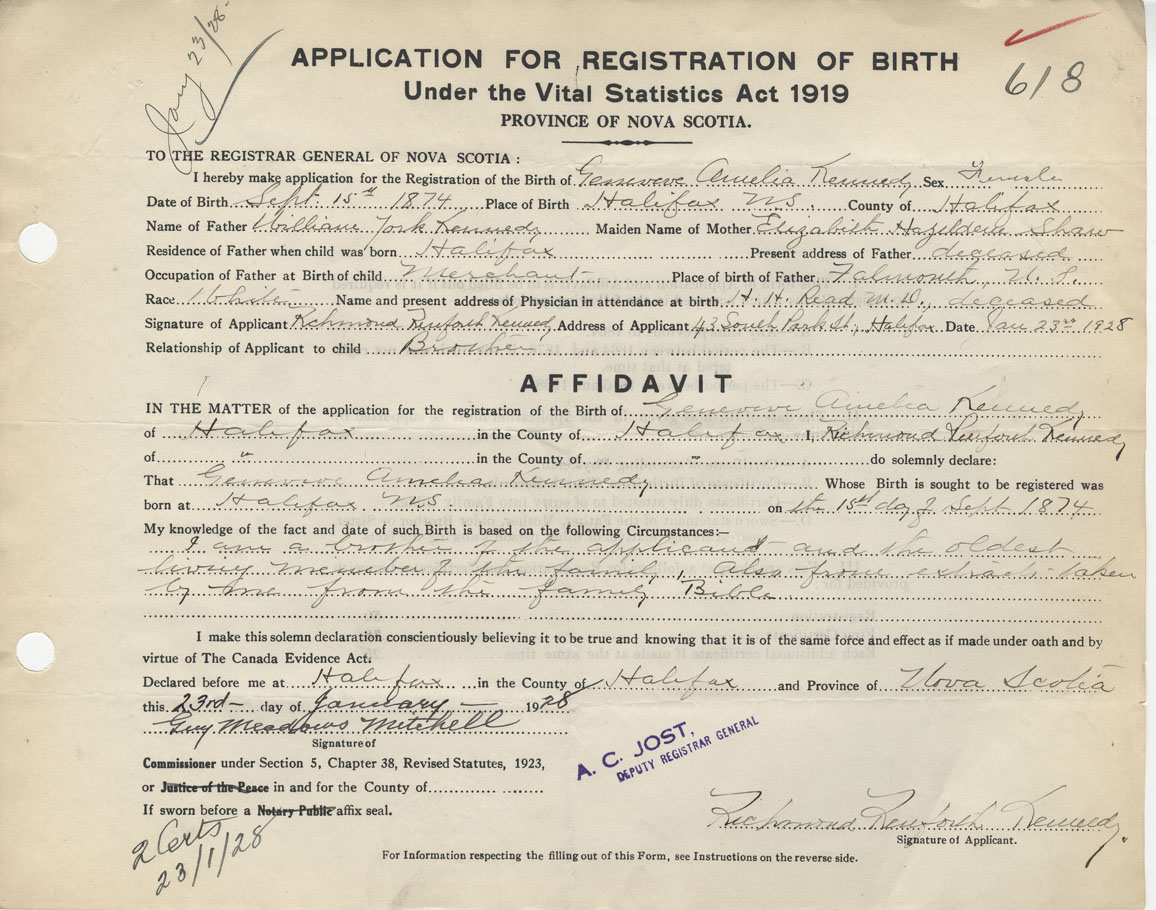 Jany 23/28
618
APPLICATION FOR REGISTRATION OF BIRTH
Under the Vital Statistics Act 1919
PROVINCE OF NOVA SCOTIA.
TO THE REGISTRAR GENERAL OF NOVA SCOTIA :
I hereby make application for the Registration of the Birth of Geneveve Amelia Kennedy Sex Female
Date of Birth Sept. 15th 1874 Place of Birth Halifax N.S. County of Halifax
Name of Father William York Kennedy Maiden Name of Mother Elizabeth Shaw
Residence of Father when child was born Halifax Present address of Father deceased
Occupation of Father at Birth of child Merchant Place of birth of Father Falmouth, N. S.
Race White Name and present address of Physician in attendance at birth H. H. Read M.D., deceased
Signature of Applicant Richmond Kennedy Address of Applicant 43 South Park St, Halifax Date Jan 23rd 1928
Relationship of Applicant to child Brother
AFFIDAVIT
IN THE MATTER of the application for the registration of the Birth of Geneveve Amelia Kennedy
of Halifax in the County of Halifax I, Richmond Kennedy
of " in the County of " do solemnly declare:
That Genevieve Amelia Kennedy Whose Birth is sought to be registered was
born at Halifax N.S. on the 15th day of Sept. 1874
My knowledge of the fact and date of such Birth is based on the following Circumstances:—
I am a brother of the applicant and the oldest
living member of the family, Also from extract taken
by me from the family Bible.
I make this solemn declaration conscientiously believing it to be true and knowing that it is of the same force and effect as if made under oath and by
virtue of The Canada Evidence Act.
Declared before me at Halifax in the County of Halifax and Province of Nova Scotia
this 23rd day of January 1928
Guy Meadows Mitchell
Signature of
Commissioner under Section 5, Chapter 38, Revised Statutes, 1923,
or Justice of the Peace in and for the County of
If sworn before a Notary Public affix seal.
A. C. JOST,
DEPUTY REGISTRAR GENERAL
Richmond Kennedy
Signature of Applicant.
2 Certs
23/1/28
For Information respecting the filling out of this Form, see Instructions on the reverse side.